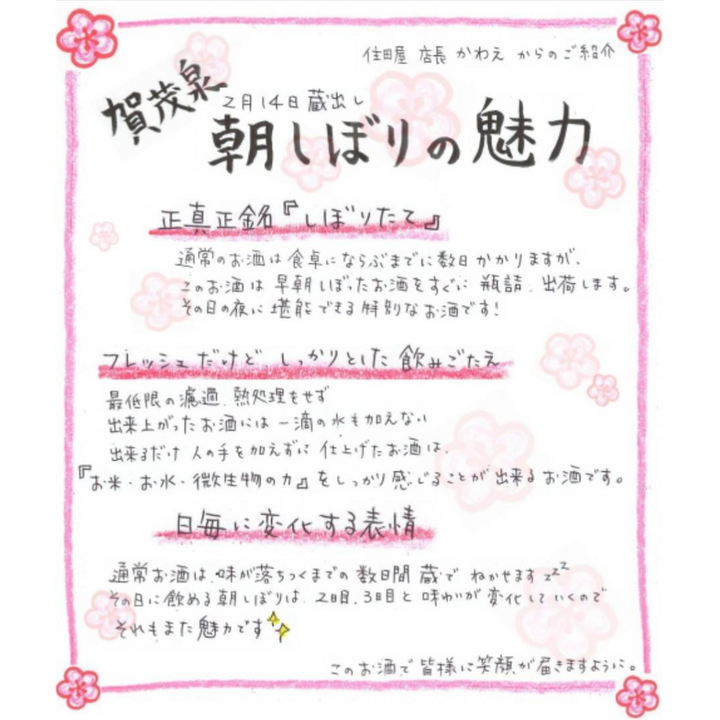 住田屋 店長 かわえ からのご紹介
賀茂泉
2月14日 蔵出し
朝しぼりの魅力
正真正銘『しぼりたて』
通常のお酒は食卓にならぶまでに数日かかりますが、
このお酒は 早朝しぼったお酒をすぐに 瓶詰、出荷します。
その日の夜に堪能できる特別なお酒です!
フレッシュだけど しっかりとした 飲みごたえ
最低限の濾過、熱処理をせず
出来上がったお酒には 一滴の水も加えない
出来るだけ 人の手を加えずに 仕上げたお酒は、
『お米・お水・微生物の力』をしっかり感じることが出来るお酒です。
日毎に変化する表情
通常お酒は、味が落ちつくまでの数日間 蔵で ねかせます zzz
その日に飲める朝しぼりは、2日目、3日目と 味わいが 変化していくので
それもまた魅力です
このお酒で 皆様に笑顔が届きますように。